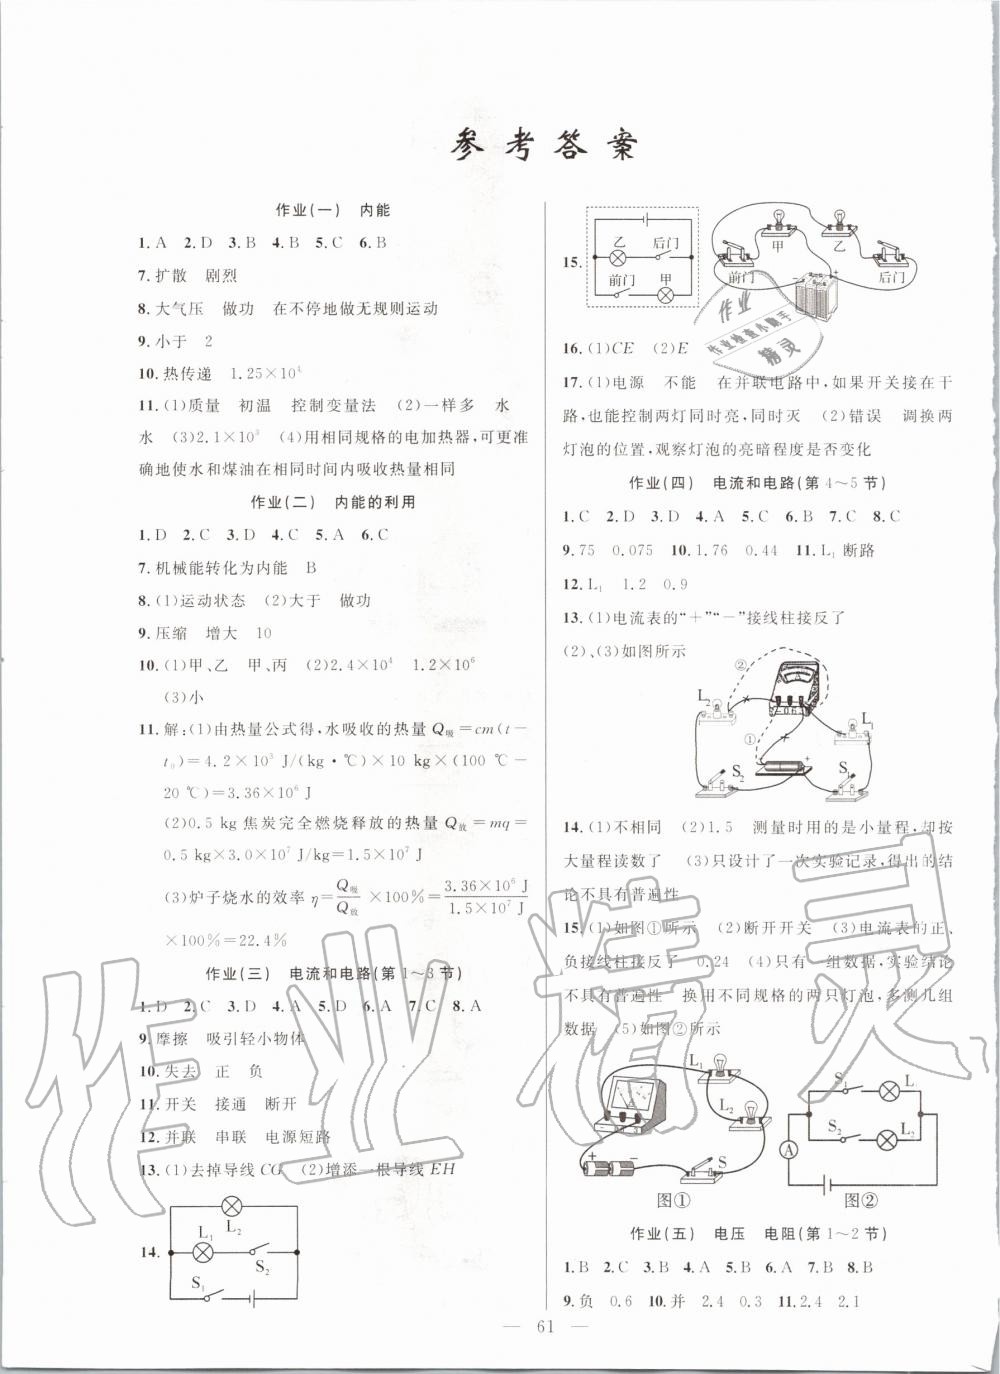 参考答案
作业(一) 内能
1.A 2.D 3.B 4.B 5.C 6.B
7.扩散 剧烈
8.大气压 做功 在不停地做无规则运动
9.小于 2
10.热传递 1.25×10⁴
11.(1)质量 初温 控制变量法 (2)一样多 水
水 (3)2.1×10³ (4)用相同规格的电加热器,可更准
确地使水和煤油在相同时间内吸收热量相同
作业(二) 内能的利用
1.D 2.C 3.D 4.C 5.A 6.C
7.机械能转化为内能 B
8.(1)运动状态 (2)大于 做功
9.压缩 增大 10
10.(1)甲、乙 甲、丙 (2)2.4×10⁴ 1.2×10⁶
(3)小
11.解:(1)由热量公式得,水吸收的热量Q吸=cm(t-
t₀)=4.2×10³ J/(kg·℃)×10 kg×(100 ℃-
20 ℃)=3.36×10⁶ J
(2)0.5 kg焦炭完全燃烧释放的热量Q放=mq=
0.5 kg×3.0×10⁷ J/kg=1.5×10⁷ J
(3)炉子烧水的效率η=Q吸/Q放×100%=3.36×10⁶ J/1.5×10⁷ J
×100%=22.4%
作业(三) 电流和电路(第1~3节)
1.D 2.C 3.D 4.C 5.A 6.A 7.C 8.A
9.摩擦 吸引轻小物体
10.失去 正 负
11.开关 接通 断开
12.并联 串联 电源短路
13.(1)去掉导线CG (2)增添一根导线EH
14.
L₂
L₁
S₂
S₁
15.
乙 后门
前门 甲
甲 乙
前门 后门
- +
作业
作业检查小助手
精灵
16.(1)CE (2)E
17.(1)电源 不能 在并联电路中,如果开关接在干
路,也能控制两灯同时亮,同时灭 (2)错误 调换两
灯泡的位置,观察灯泡的亮暗程度是否变化
作业(四) 电流和电路(第4~5节)
1.C 2.D 3.D 4.A 5.C 6.B 7.C 8.C
9.75 0.075 10.1.76 0.44 11.L₁ 断路
12.L₁ 1.2 0.9
13.(1)电流表的“+”“-”接线柱接反了
(2)、(3)如图所示
②
A
L₂
L₁
①
S₂
S₁
14.(1)不相同 (2)1.5 测量时用的是小量程,却按
大量程读数了 (3)只设计了一次实验记录,得出的结
论不具有普遍性
15.(1)如图①所示 (2)断开开关 (3)电流表的正、
负接线柱接反了 0.24 (4)只有一组数据,实验结论
不具有普遍性 换用不同规格的两只灯泡,多测几组
数据 (5)如图②所示
L₁
L₂
A
+ -
S
S₁ L₁
S₂ L₂
A
图① 图②
作业(五) 电压 电阻(第1~2节)
1.B 2.C 3.B 4.A 5.B 6.A 7.B 8.B
9.负 0.6 10.并 2.4 0.3 11.2.4 2.1
— 61 —
作业精灵